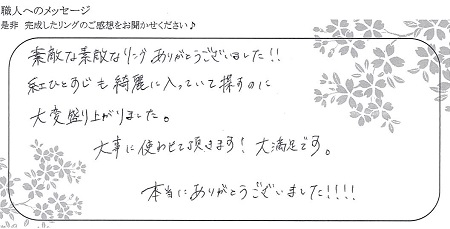 職人へのメッセージ
是非 完成したリングのご感想をお聞かせください♪
素敵な素敵なリングありがとうございました!!
紅ひとすじも綺麗に入っていて探すのに
大変盛り上がりました。
大事に使わせて頂きます! 大満足です。
本当にありがとうございました!!!!